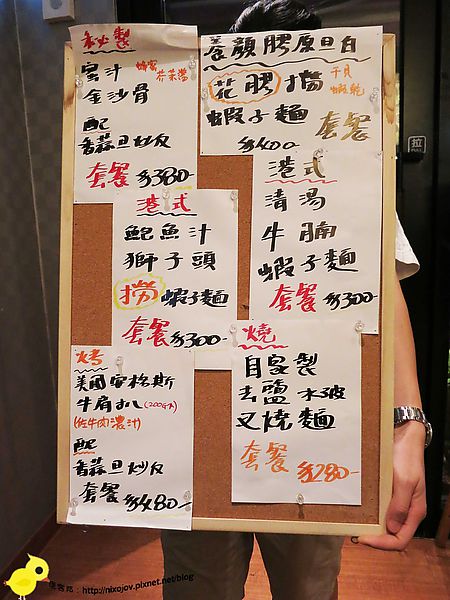 秘製
蜜汁 蜂蜜
芥茉醬
金沙骨
配
香蒜旦炒飯
套餐 $380-
養顏膠原旦白
花膠撈 干貝
蝦乾
蝦子麵 套餐
$400
港式
鮑魚汁
獅子頭
撈 蝦子麵
套餐 $300-
港式
清湯
牛腩
蝦子麵
套餐 $300-
烤
美國安格斯
牛肩扒 (200G片)
(佐牛肉濃汁)
配
香蒜旦炒飯
套餐 $480-
燒
自家製
去鹽水破
叉燒麵
套餐
$280-
拉
PULL
http://nixojov.pixnet.net/blog